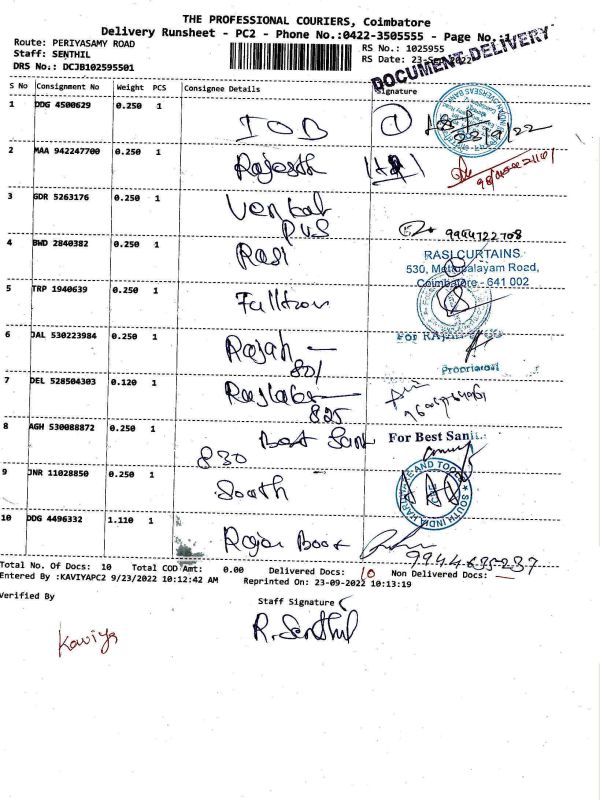 THE PROFESSIONAL COURIERS, Coimbatore
Delivery Runsheet - PC2 - Phone No.:0422-3505555 - Page No.:
Route: PERIYASAMY ROAD
RS No.: 1025955
Staff: SENTHIL
RS Date: 23-Sep-2022
DRS No.: DCJB102595501
DOCUMENT DELIVERY
S No Consignment No Weight PCS Consignee Details Signature
1 DDG 4500629 0.250 1 IOB 1 23/9/22
2 MAA 942247700 0.250 1 Rajesth
3 GDR 5263176 0.250 1 Venkat
PVS 9944722708
4 BWD 2840382 0.250 1 Rasi
RASI CURTAINS
530, Mettupalayam Road,
Coimbatore - 641 002
5 TRP 1940639 0.250 1 Fulltron
6 JAL 530223984 0.250 1 Rajah -
801
For RAJAH
Proprietor
7 DEL 528504303 0.120 1
825
8 AGH 530088872 0.250 1 Best Sani
830
For Best Sani
9 JNR 11028850 0.250 1 South
SOUTH INDIA HARDWARE AND TOOLS
10 DDG 4496332 1.110 1 Rajan Book
9944695237
Total No. Of Docs: 10 Total COD Amt: 0.00 Delivered Docs: 10 Non Delivered Docs: —
Entered By :KAVIYAPC2 9/23/2022 10:12:42 AM Reprinted On: 23-09-2022 10:13:19
Verified By
Staff Signature
Kaviya
R. Senthil